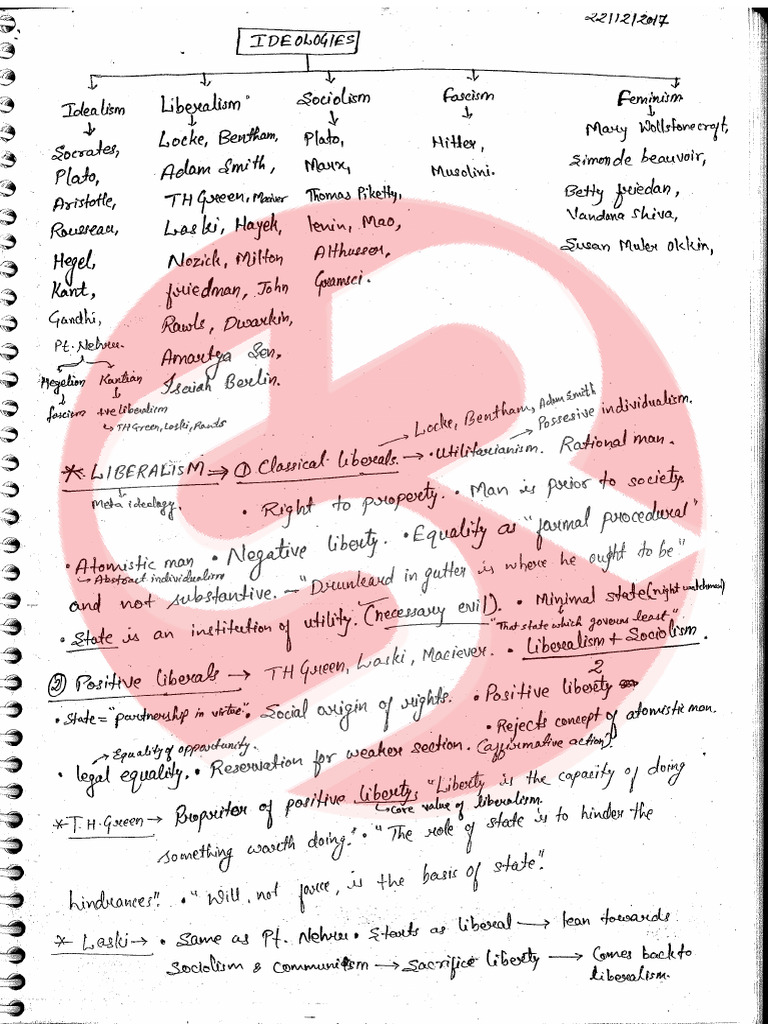 22/12/2017
IDEOLOGIES
Idealism
Socrates,
Plato,
Aristotle,
Rousseau,
Hegel,
Kant,
Gandhi,
Pt. Nehru.
Hegelion Kantian
fascism +ve liberalism
TH Green, Loski, Rawls
Liberalism
Locke, Bentham,
Adam Smith,
TH Green, Maciver
Laski, Hayek,
Nozick, Milton
friedman, John
Rawls, Dwarkin,
Amartya Sen,
Isaiah Berlin.
Sociolism
Plato,
Marx,
Thomas Piketty,
lenin, Mao,
Althusser,
Gramsci.
Fascism
Hitler,
Musolini.
Feminism
Mary Wollstonecroft,
Simon de beauvoir,
Betty friedan,
Vandana Shiva,
Susan Muler Okkin,
Locke, Bentham, Adam Smith
Possesive individualism.
* LIBERALISM ⇒ ① Classical liberals. → • Utilitarianism. Rational man.
Meta ideology.
• Right to property. • Man is prior to society.
• Atomistic man • Negative liberty. • Equality as "formal procedural"
Abstract individualism
and not substantive. - "Drunkard in gutter is where he ought to be"
• State is an institution of utility. (necessary evil). • Minimal state (night watchmen)
"That state which governs least"
② Positive liberals → TH Green, Laski, Maciever. • Liberalism + Sociolism
2
• State = "partnership in virtue" • Social origin of rights. • Positive liberty
• Rejects concept of atomistic man.
Equality of opportunity.
• legal equality. • Reservation for weaker section. (affirmative action).
* T.H. Green → Propriter of positive liberty. "Liberty is the capacity of doing
core value of liberalism.
something worth doing." • "The role of state is to hinder the
hindrances". • "Will, not force, is the basis of state".
* Laski → • Same as Pt. Nehru • Starts as liberal → lean towards
Sociolism & communism → Sacrifice liberty → Comes back to
liberalism.